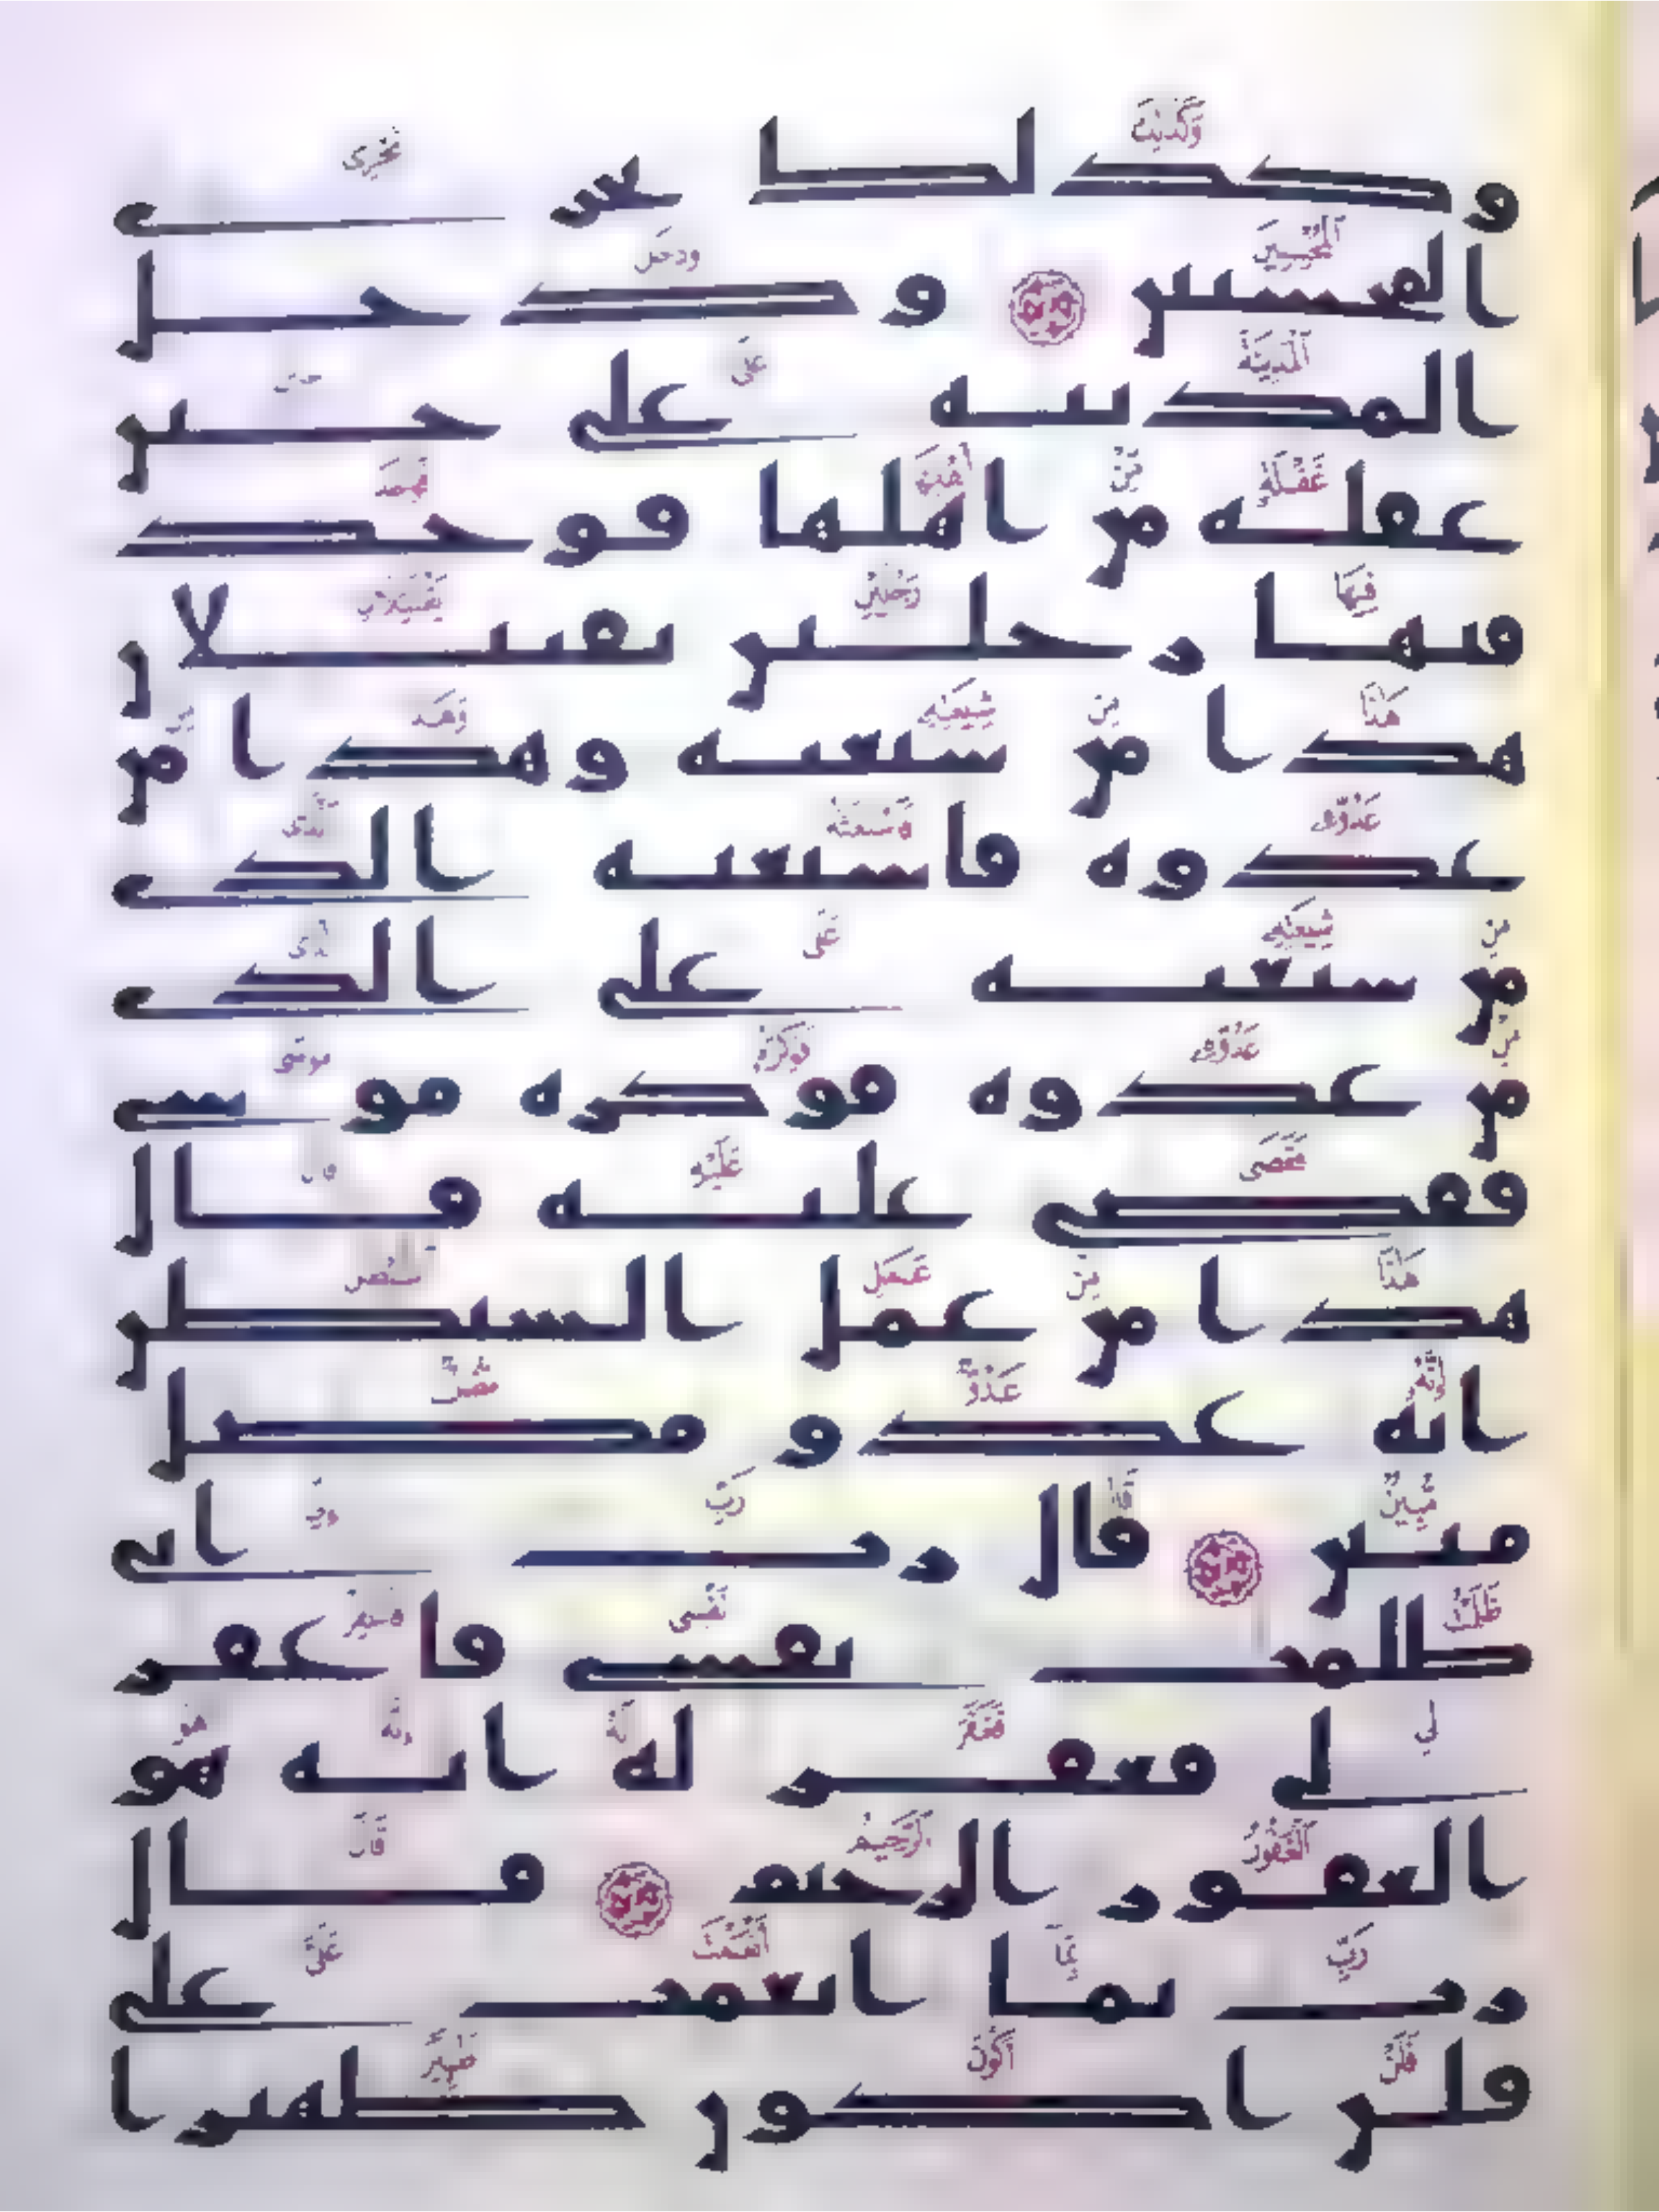 وكذلك نجزي
المحسنين ودخل
المدينة على حين
غفلة من اهلها فوجد
فيها رجلين يقتتلان
هذا من شيعته وهذا من
عدوه فاستغثه الذي
من شيعته على الذي
من عدوه فوكزه موسى
فقضى عليه قال
هذا من عمل الشيطن
انه عدو مضل
مبين قال رب اني
ظلمت نفسي فاغفر
لي فغفر له انه هو
الغفور الرحيم قال
رب بما انعمت علي
فلن اكون ظهيرا